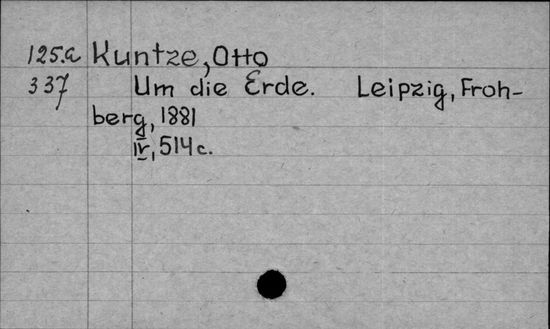 125.a Kuntze, Otto
337 Um die Erde. Leipzig, Froh-
berg, 1881
IV, 514 c.